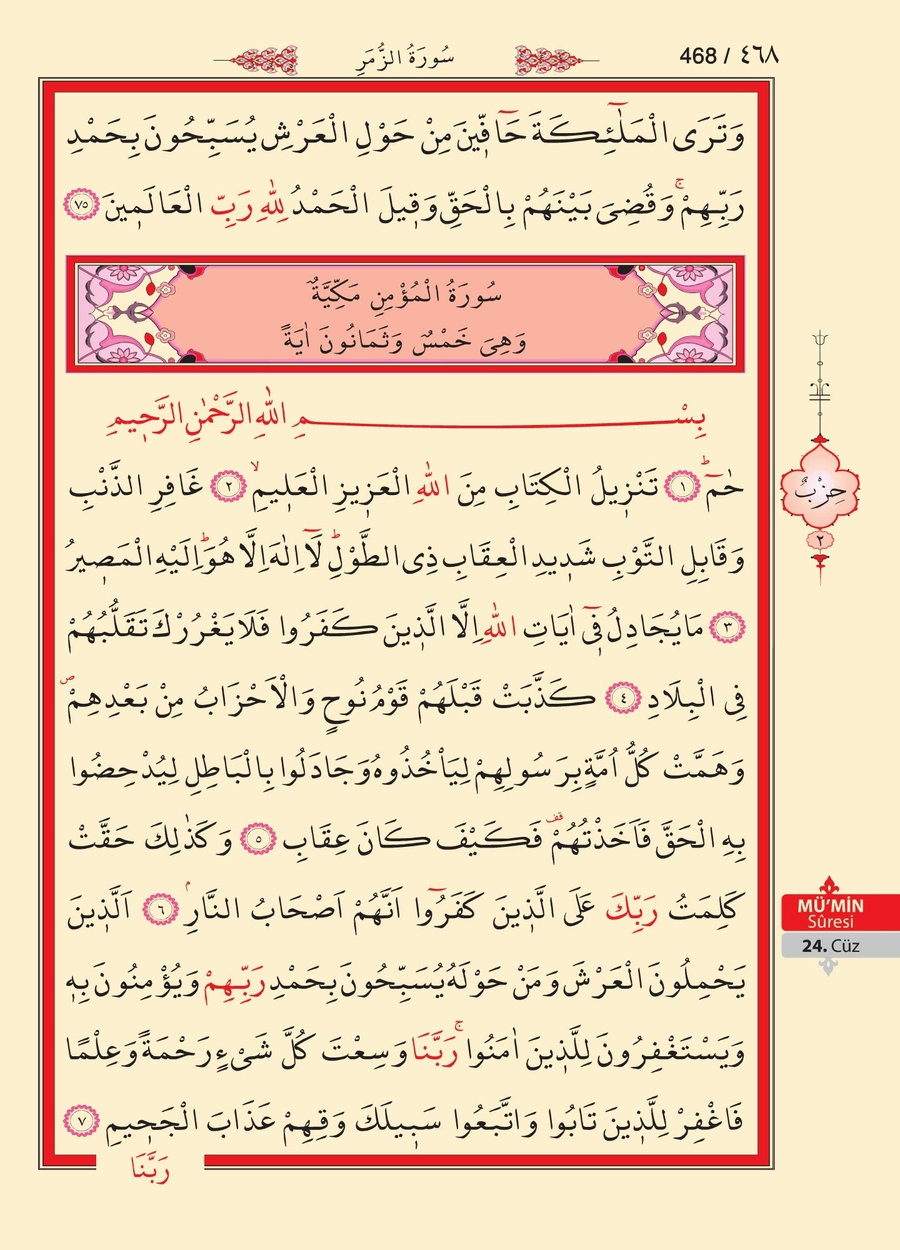 سُورَةُ الزُّمَرِ
468 / ٤٦٨
وَتَرَى الْمَلٰٓئِكَةَ حَٓافّ۪ينَ مِنْ حَوْلِ الْعَرْشِ يُسَبِّحُونَ بِحَمْدِ
رَبِّهِمْۚ وَقُضِيَ بَيْنَهُمْ بِالْحَقِّ وَق۪يلَ الْحَمْدُ لِلّٰهِ رَبِّ الْعَالَم۪ينَ ﴿٧٥﴾
سُورَةُ الْمُؤْمِنِ مَكِّيَّةٌ
وَهِيَ خَمْسٌ وَثَمَانُونَ اٰيَةً
بِسْمِ اللّٰهِ الرَّحْمٰنِ الرَّح۪يمِ
حٰمٓۜ ﴿١﴾ تَنْز۪يلُ الْكِتَابِ مِنَ اللّٰهِ الْعَز۪يزِ الْعَل۪يمِۙ ﴿٢﴾ غَافِرِ الذَّنْبِ
وَقَابِلِ التَّوْبِ شَد۪يدِ الْعِقَابِ ذِي الطَّوْلِۜ لَٓا اِلٰهَ اِلَّا هُوَۜ اِلَيْهِ الْمَص۪يرُ
﴿٣﴾ مَا يُجَادِلُ ف۪ٓي اٰيَاتِ اللّٰهِ اِلَّا الَّذ۪ينَ كَفَرُوا فَلَا يَغْرُرْكَ تَقَلُّبُهُمْ
فِي الْبِلَادِ ﴿٤﴾ كَذَّبَتْ قَبْلَهُمْ قَوْمُ نُوحٍ وَالْاَحْزَابُ مِنْ بَعْدِهِمْۖ
وَهَمَّتْ كُلُّ اُمَّةٍ بِرَسُولِهِمْ لِيَأْخُذُوهُ وَجَادَلُوا بِالْبَاطِلِ لِيُدْحِضُوا
بِهِ الْحَقَّ فَاَخَذْتُهُمْ۠ فَكَيْفَ كَانَ عِقَابِ ﴿٥﴾ وَكَذٰلِكَ حَقَّتْ
كَلِمَتُ رَبِّكَ عَلَى الَّذ۪ينَ كَفَرُٓوا اَنَّهُمْ اَصْحَابُ النَّارِۢ ﴿٦﴾ اَلَّذ۪ينَ
يَحْمِلُونَ الْعَرْشَ وَمَنْ حَوْلَهُ يُسَبِّحُونَ بِحَمْدِ رَبِّهِمْ وَيُؤْمِنُونَ بِه۪
وَيَسْتَغْفِرُونَ لِلَّذ۪ينَ اٰمَنُواۚ رَبَّنَا وَسِعْتَ كُلَّ شَيْءٍ رَحْمَةً وَعِلْمًا
فَاغْفِرْ لِلَّذ۪ينَ تَابُوا وَاتَّبَعُوا سَب۪يلَكَ وَقِهِمْ عَذَابَ الْجَح۪يمِ ﴿٧﴾
رَبَّنَا
حِزْبٌ
٢
MÜ'MİN
Sûresi
24. Cüz